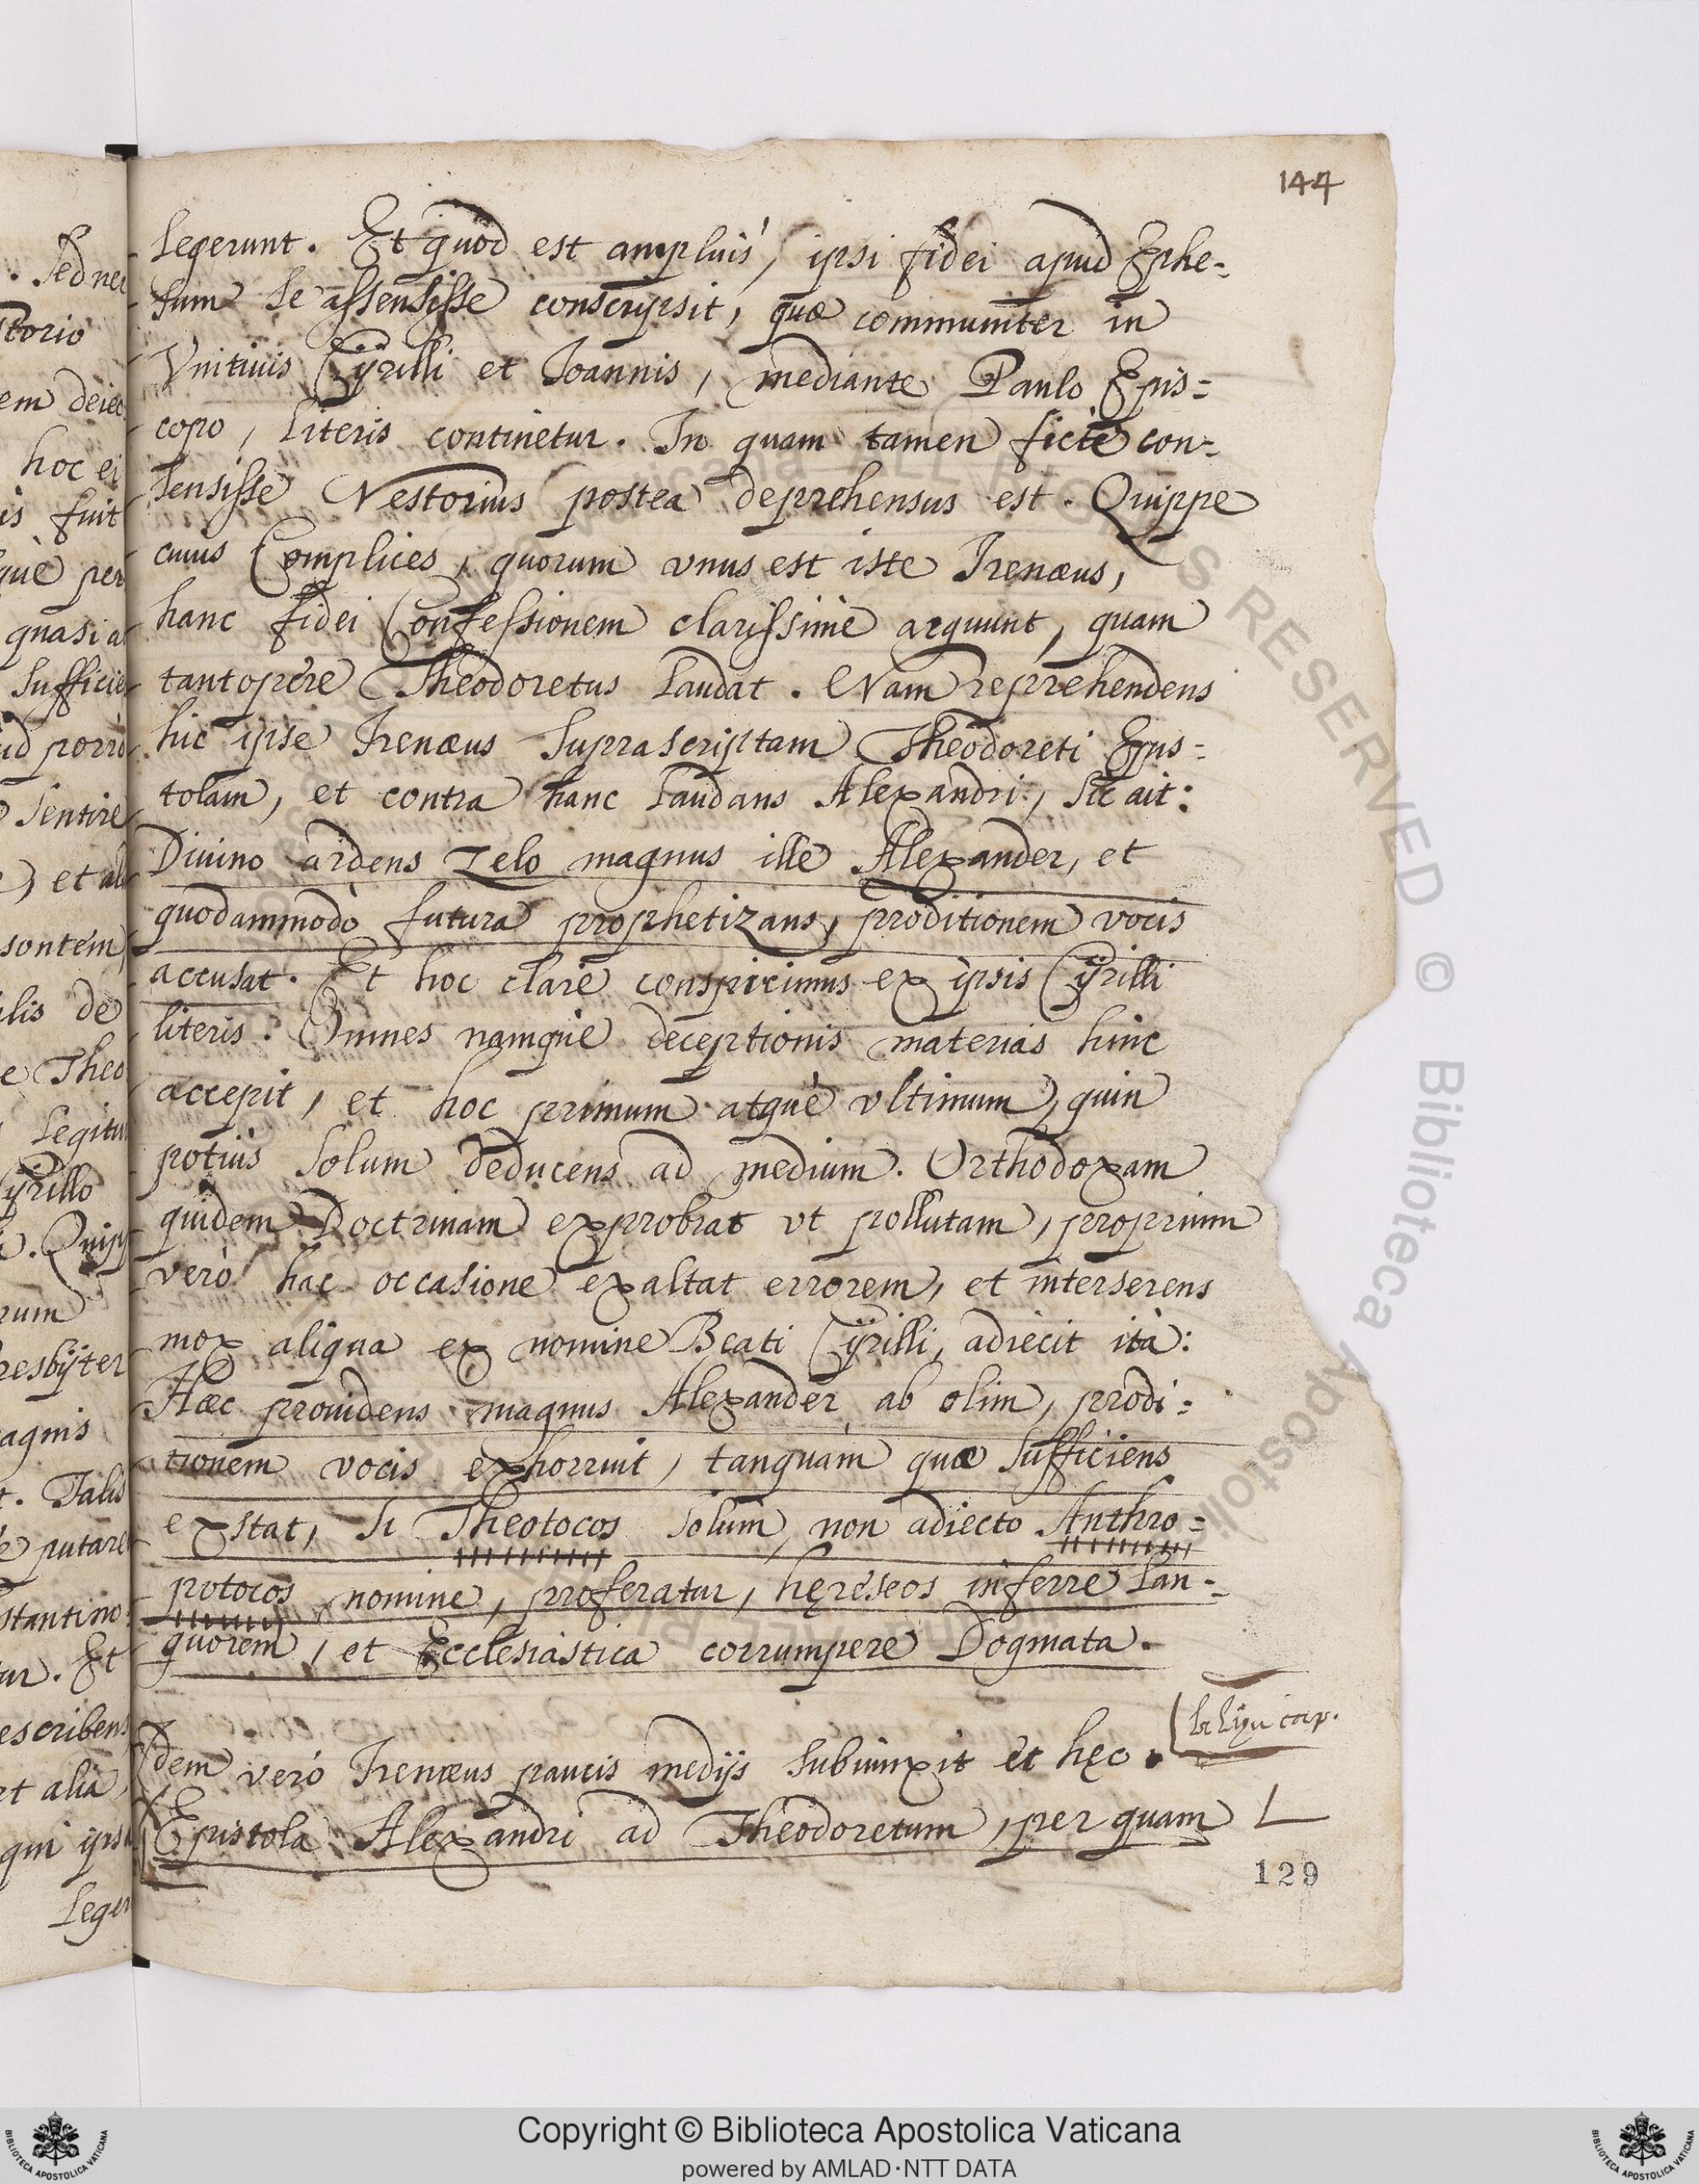 144
legerunt. Et quod est ampliùs, ipsi fidei apud Ephe-
sum se assensisse conscripsit, quæ communiter in
Vnitiuis Cÿrilli et Joannis, mediante Paulo Epis=
copo, literis continetur. In quam tamen fictè con-
sensisse Nestorius postea deprehensus est. Quippe
cuius Complices, quorum vnus est iste Irenæus,
hanc fidei Confessionem clarissimè arguunt, quam
tantopere Theodoretus laudat. Nam reprehendens
hic ipse Irenæus suprascriptam Theodoreti Epis-
tolam, et contra hanc laudans Alexandri, sic ait:
Diuino ardens zelo magnus ille Alexander, et
quodammodò futura prophetizans, proditionem vocis
accusat. Et hoc clarè conspicimus ex ipsis Cÿrilli
literis. Omnes namque deceptionis materias hinc
accepit, et hoc primum atquè vltimum, quin
potiùs solum deducens ad medium. Orthodoxam
quidem Doctrinam exprobrat vt pollutam, proprium
verò hac occasione exaltat errorem, et interserens
mox aliqua ex nomine Beati Cÿrilli, adiecit ità:
Hæc prouidens magnus Alexander ab olim, prodi=
tionem vocis exhorruit, tanquàm quæ sufficiens
exstat, si Theotocos solùm, non adiecto Anthro=
potocos nomine, proferatur, hęreseos inferre lan-
guorem, et Ecclesiastica corrumpere Dogmata.
Idem verò Irenæus paucis medijs subiunxit et hęc.
cap.
Epistola Alexandri ad Theodoretum, per quam
129
. Sed nec
storio
em deiec
hoc ei
is fuit
què per
quasi a
suffici
id porrò
sentire
et al
sontem
ilis de
e Theo
legitur
Cÿrillo
. Quip
rum
resbÿter
agnis
t. Talis
putare
stantino
ur. Et
escribens
et alia
qui ips
leger
Copyright © Biblioteca Apostolica Vaticana
powered by AMLAD·NTT DATA